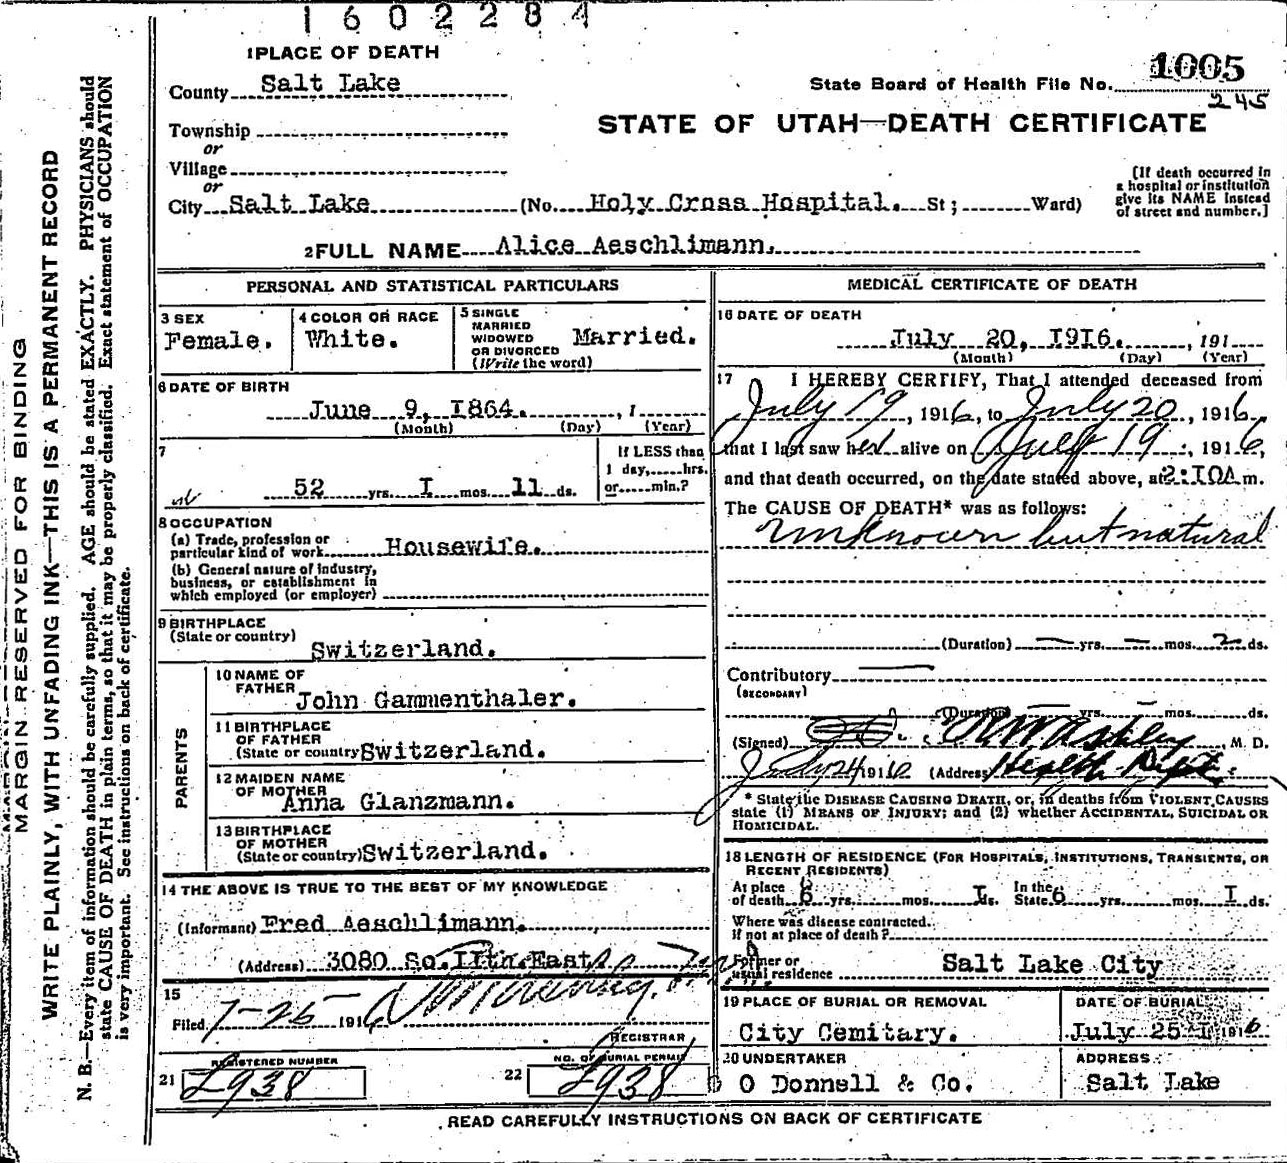 1602284
1 PLACE OF DEATH
County Salt Lake
State Board of Health File No. 1005
245
STATE OF UTAH—DEATH CERTIFICATE
Township
or
Village
or
City Salt Lake (No. Holy Cross Hospital. St; Ward)
[If death occurred in
a hospital or institution
give its NAME instead
of street and number.]
2 FULL NAME Alice Aeschlimann.
PERSONAL AND STATISTICAL PARTICULARS
3 SEX
Female.
4 COLOR OR RACE
White.
5 SINGLE
MARRIED
WIDOWED
OR DIVORCED
(Write the word)
Married.
6 DATE OF BIRTH
June 9, 1864. , 1
(Month) (Day) (Year)
7
52 yrs. I mos. 11 ds.
If LESS than
1 day, hrs.
or min.?
8 OCCUPATION
(a) Trade, profession or
particular kind of work Housewife.
(b) General nature of industry,
business, or establishment in
which employed (or employer)
9 BIRTHPLACE
(State or country)
Switzerland.
PARENTS
10 NAME OF
FATHER
John Gammenthaler.
11 BIRTHPLACE
OF FATHER
(State or country Switzerland.
12 MAIDEN NAME
OF MOTHER
Anna Glanzmann.
13 BIRTHPLACE
OF MOTHER
(State or country) Switzerland.
14 THE ABOVE IS TRUE TO THE BEST OF MY KNOWLEDGE
(Informant) Fred Aeschlimann.
(Address) 3080 So. IIth. East.
15
Filed 7-25- 1916
REGISTRAR
REGISTERED NUMBER
21 L938
NO. OF BURIAL PERMIT
22 L938
MEDICAL CERTIFICATE OF DEATH
16 DATE OF DEATH
July 20, 1916. , 191
(Month) (Day) (Year)
17 I HEREBY CERTIFY, That I attended deceased from
July 19, 1916, to July 20, 1916,
that I last saw her alive on July 19, 1916,
and that death occurred, on the date stated above, at 2:10A m.
The CAUSE OF DEATH* was as follows:
Unknown but natural
(Duration) — yrs. — mos. 2 ds.
Contributory —
(SECONDARY)
(Duration) yrs. mos. ds.
(Signed) Ashley, M. D.
July 24 1916 (Address) Health Dept.
* State the DISEASE CAUSING DEATH, or, in deaths from VIOLENT CAUSES
state (1) MEANS OF INJURY; and (2) whether ACCIDENTAL, SUICIDAL OR
HOMICIDAL.
18 LENGTH OF RESIDENCE (FOR HOSPITALS, INSTITUTIONS, TRANSIENTS, OR
RECENT RESIDENTS)
At place
of death 6 yrs. mos. I ds.
In the
State 6 yrs. mos. I ds.
Where was disease contracted.
if not at place of death?
Former or
usual residence Salt Lake City
19 PLACE OF BURIAL OR REMOVAL
City Cemitary.
DATE OF BURIAL
July 25 1916
20 UNDERTAKER
O Donnell & Co.
ADDRESS
Salt Lake
READ CAREFULLY INSTRUCTIONS ON BACK OF CERTIFICATE
MARGIN RESERVED FOR BINDING
WRITE PLAINLY, WITH UNFADING INK—THIS IS A PERMANENT RECORD
N. B.—Every item of information should be carefully supplied. AGE should be stated EXACTLY. PHYSICIANS should
state CAUSE OF DEATH in plain terms, so that it may be properly classified. Exact statement of OCCUPATION
is very important. See instructions on back of certificate.